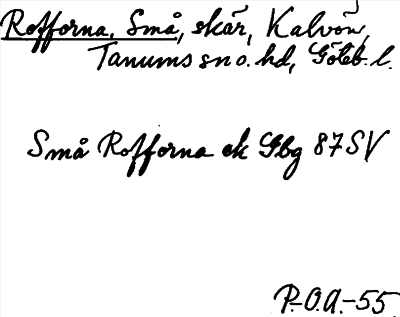 Rofforna, Små, skär, Kalvön,
Tanums sn o. hd, Göteb. l.
Små Rofforna ek Gbg 87SV
P.-O.A.-55.